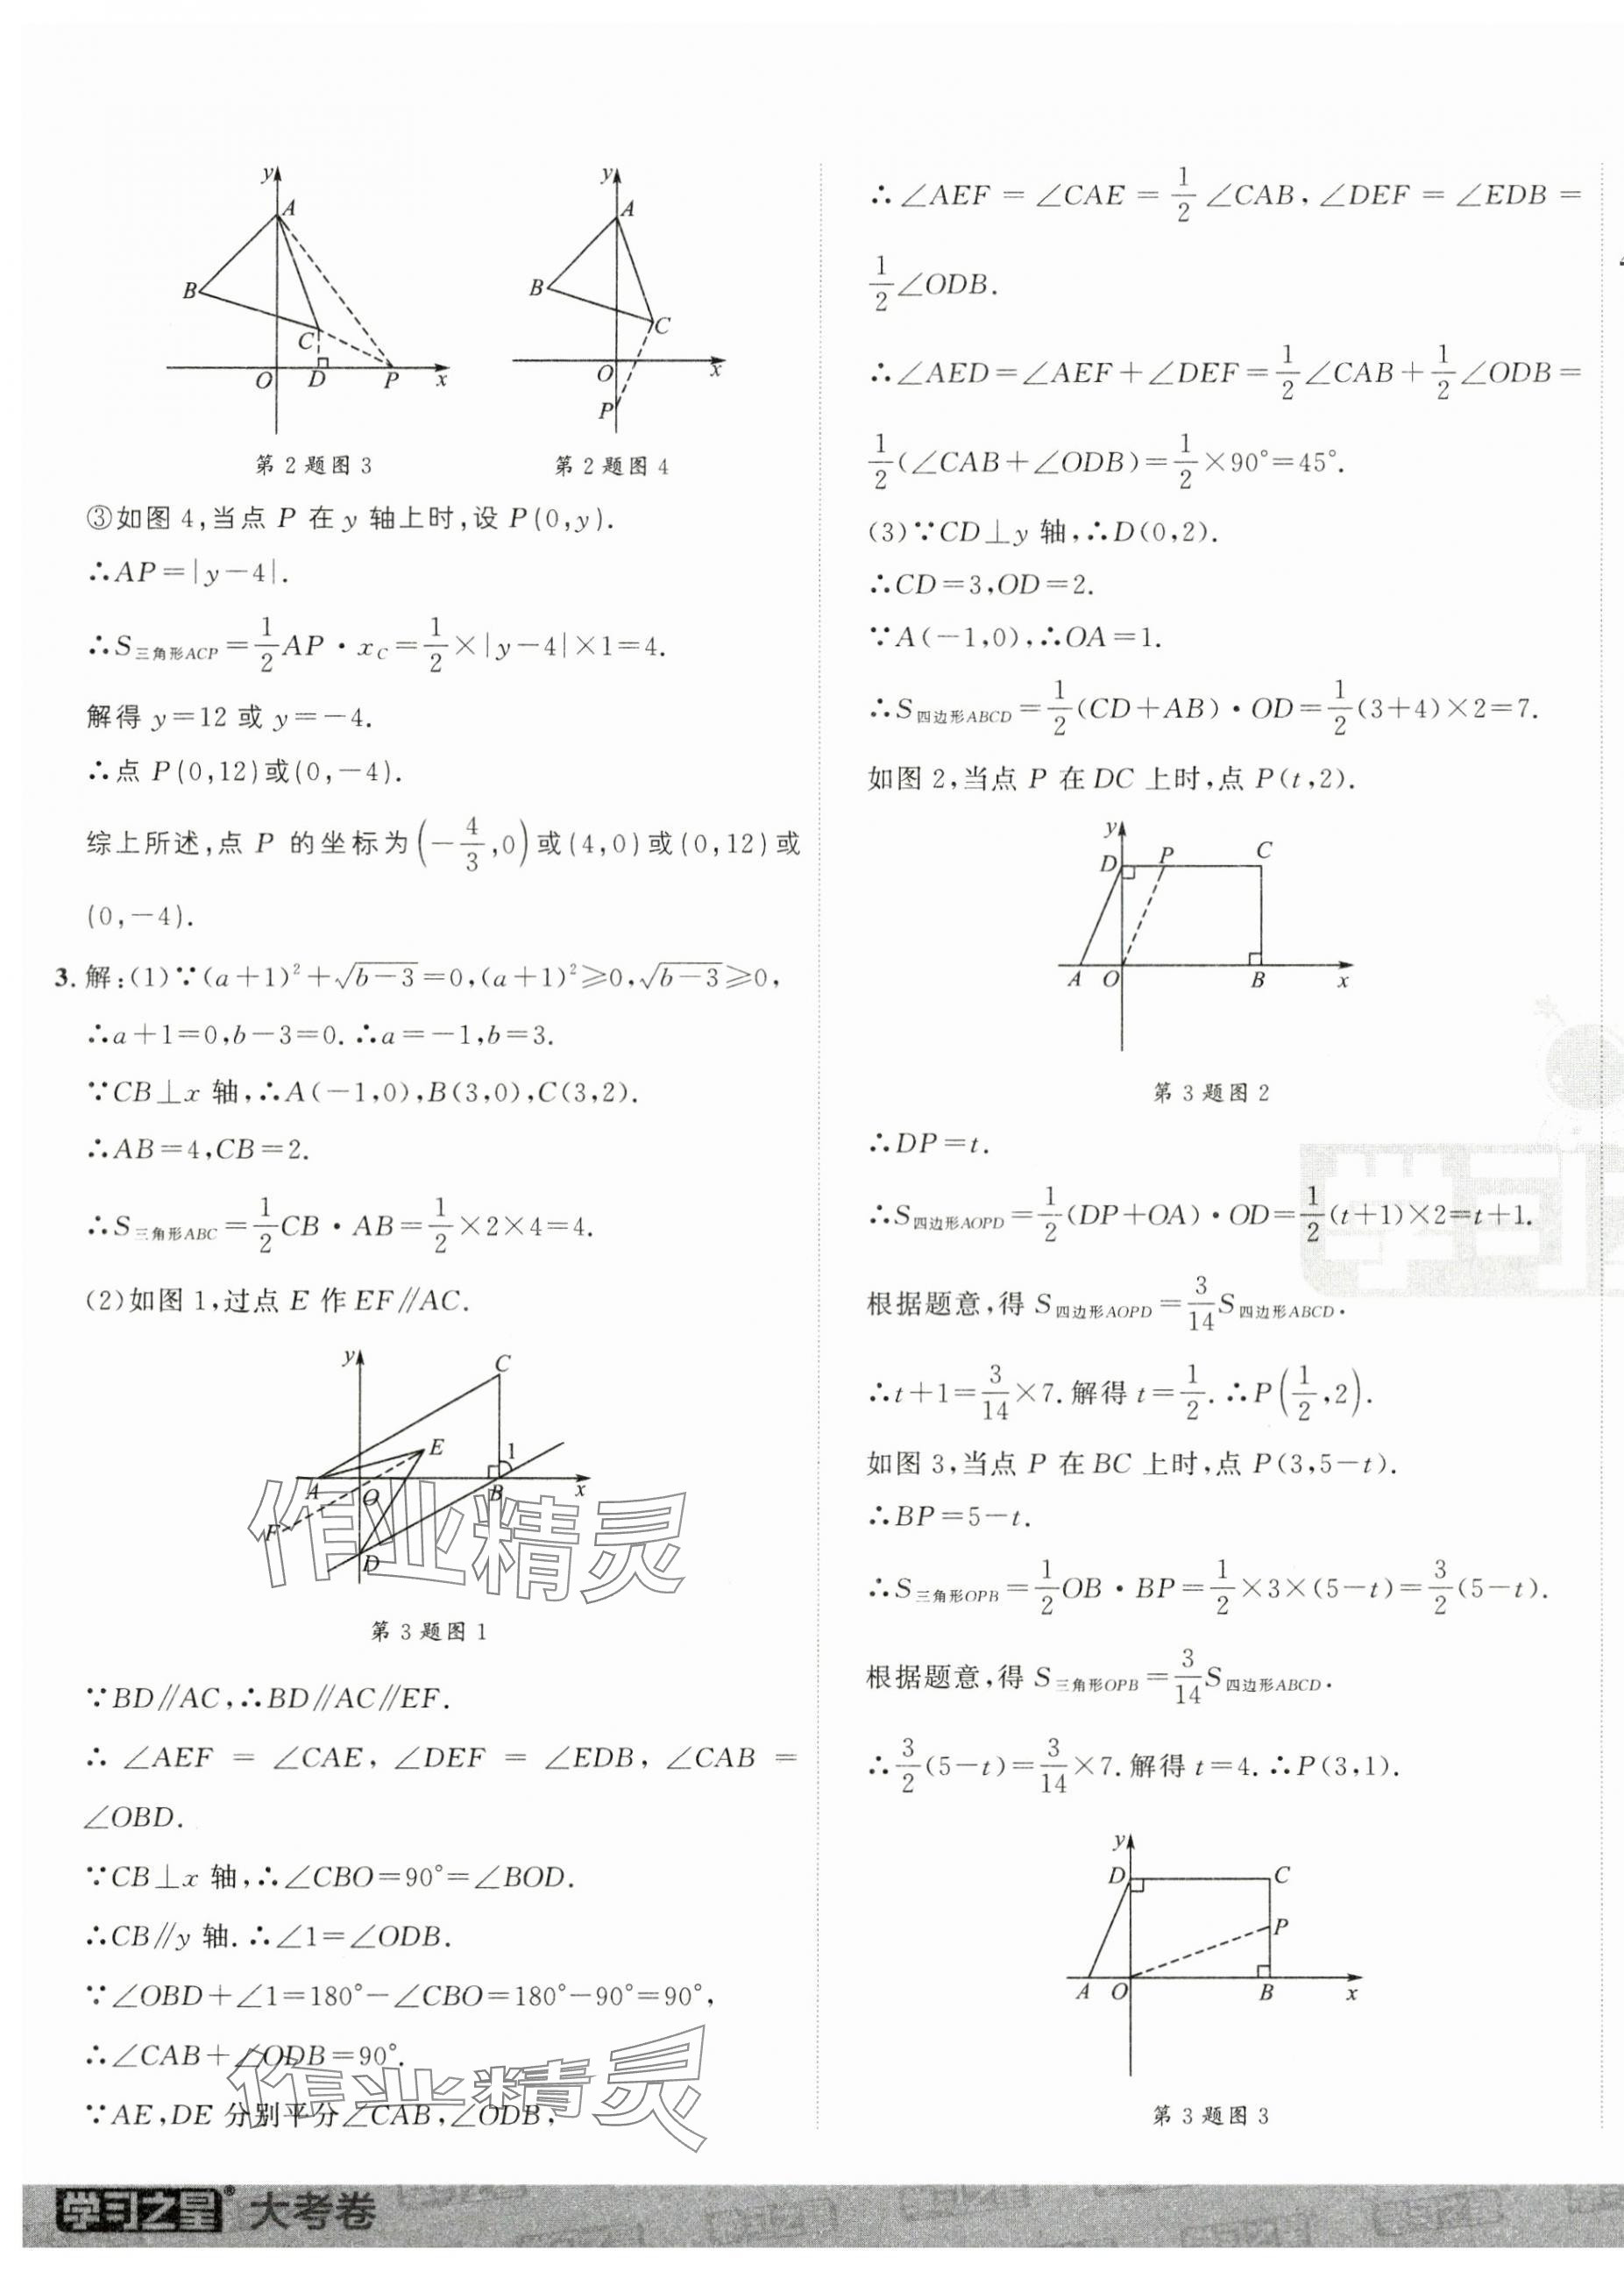 y
A
B
C
O
D
P
x
第2题图3
y
A
B
C
O
x
P
第2题图4
③如图4,当点P在y轴上时,设P(0,y).
∴AP=|y-4|.
∴S三角形ACP=1/2AP·xC=1/2×|y-4|×1=4.
解得y=12或y=-4.
∴点P(0,12)或(0,-4).
综上所述,点P的坐标为(-4/3,0)或(4,0)或(0,12)或
(0,-4).
3.解:(1)∵(a+1)²+√(b-3)=0,(a+1)²≥0,√(b-3)≥0,
∴a+1=0,b-3=0.∴a=-1,b=3.
∵CB⊥x轴,∴A(-1,0),B(3,0),C(3,2).
∴AB=4,CB=2.
∴S三角形ABC=1/2CB·AB=1/2×2×4=4.
(2)如图1,过点E作EF∥AC.
y
C
E
1
A
O
B
x
F
D
作业精灵
第3题图1
∵BD∥AC,∴BD∥AC∥EF.
∴∠AEF=∠CAE,∠DEF=∠EDB,∠CAB=
∠OBD.
∵CB⊥x轴,∴∠CBO=90°=∠BOD.
∴CB∥y轴.∴∠1=∠ODB.
∵∠OBD+∠1=180°-∠CBO=180°-90°=90°,
∴∠CAB+∠ODB=90°.
∵AE,DE分别平分∠CAB,∠ODB,
作业精灵
∴∠AEF=∠CAE=1/2∠CAB,∠DEF=∠EDB=
1/2∠ODB.
∴∠AED=∠AEF+∠DEF=1/2∠CAB+1/2∠ODB=
1/2(∠CAB+∠ODB)=1/2×90°=45°.
(3)∵CD⊥y轴,∴D(0,2).
∴CD=3,OD=2.
∵A(-1,0),∴OA=1.
∴S四边形ABCD=1/2(CD+AB)·OD=1/2(3+4)×2=7.
如图2,当点P在DC上时,点P(t,2).
y
D
P
C
A
O
B
x
第3题图2
∴DP=t.
∴S四边形AOPD=1/2(DP+OA)·OD=1/2(t+1)×2=t+1.
根据题意,得S四边形AOPD=3/14S四边形ABCD.
∴t+1=3/14×7.解得t=1/2.∴P(1/2,2).
如图3,当点P在BC上时,点P(3,5-t).
∴BP=5-t.
∴S三角形OPB=1/2OB·BP=1/2×3×(5-t)=3/2(5-t).
根据题意,得S三角形OPB=3/14S四边形ABCD.
∴3/2(5-t)=3/14×7.解得t=4.∴P(3,1).
y
D
C
P
A
O
B
x
第3题图3
学习
学习之星® 大考卷